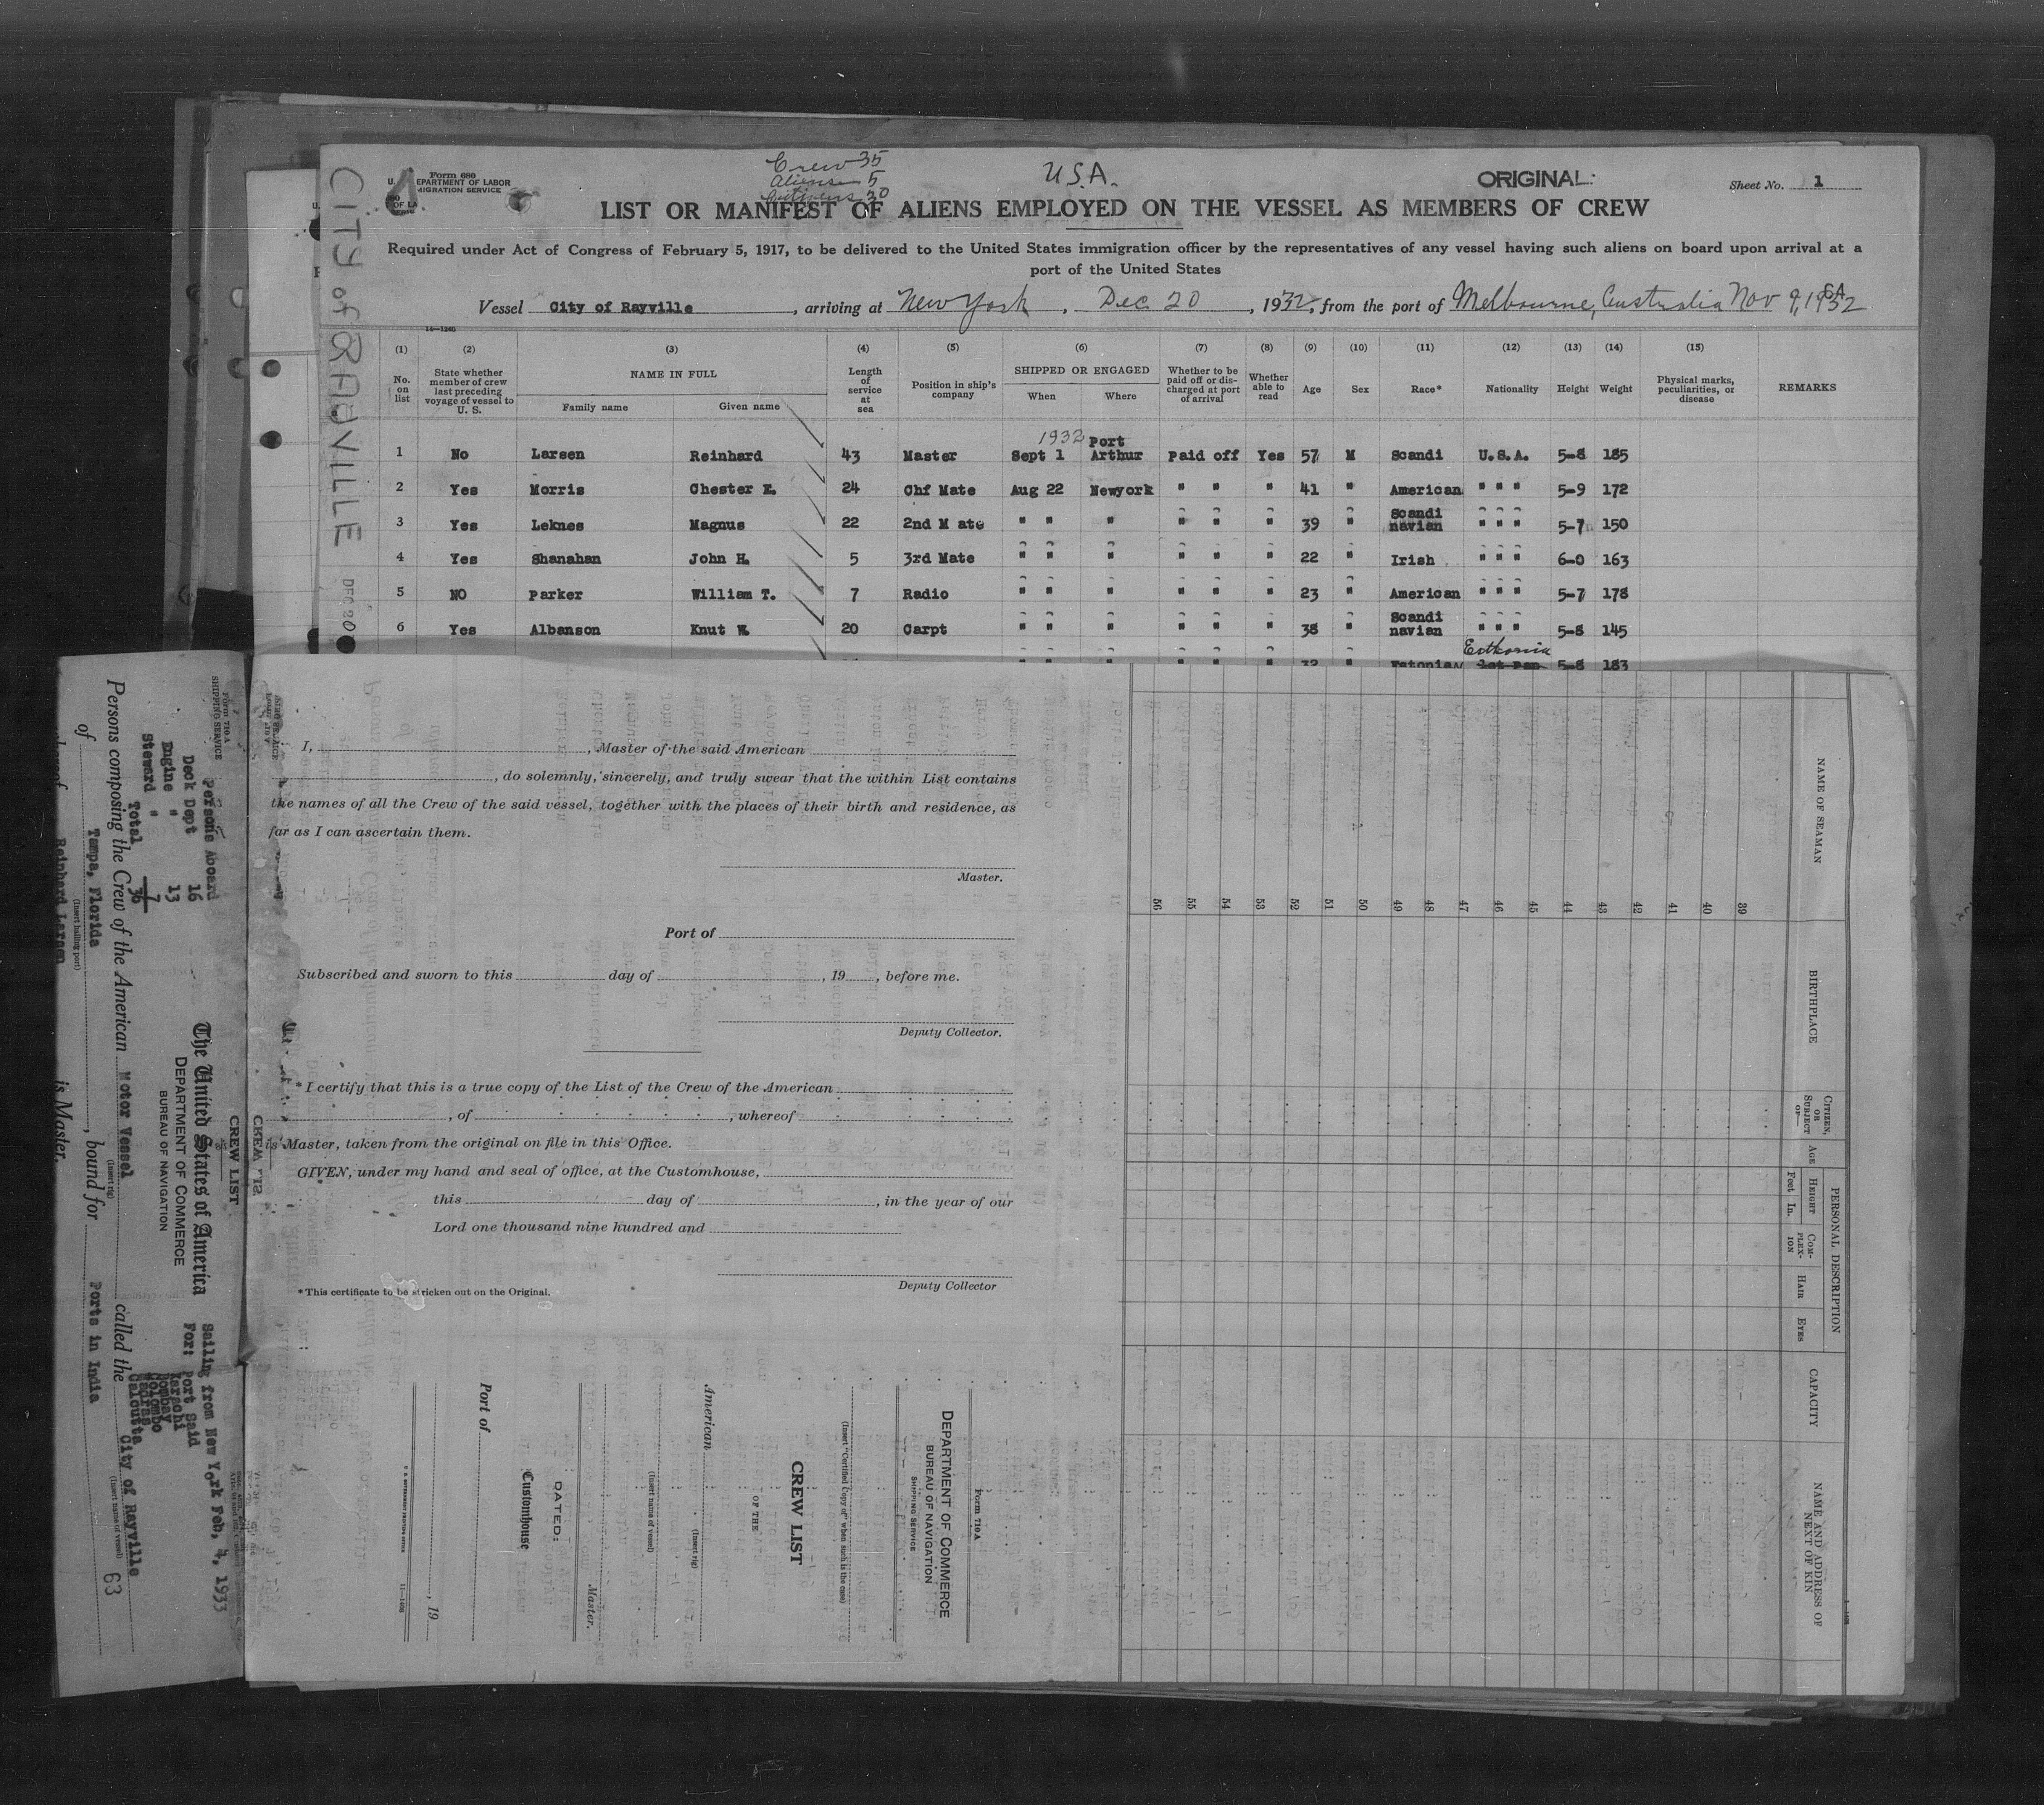 Form 680
U. S. DEPARTMENT OF LABOR
IMMIGRATION SERVICE
Crew 35
Aliens 5
Citizens 30
U.S.A.
ORIGINAL:
Sheet No. 1
LIST OR MANIFEST OF ALIENS EMPLOYED ON THE VESSEL AS MEMBERS OF CREW
Required under Act of Congress of February 5, 1917, to be delivered to the United States immigration officer by the representatives of any vessel having such aliens on board upon arrival at a
port of the United States
Vessel City of Rayville, arriving at New York, Dec 20, 1932, from the port of Melbourne, Australia Nov 9, 1932
CITY of RAYVILLE
DEC 20
14—1240
(1) (2) (3) (4) (5) (6) (7) (8) (9) (10) (11) (12) (13) (14) (15)
No. on list
State whether member of crew last preceding voyage of vessel to U. S.
NAME IN FULL
Family name
Given name
Length of service at sea
Position in ship's company
SHIPPED OR ENGAGED
When
Where
Whether to be paid off or discharged at port of arrival
Whether able to read
Age
Sex
Race*
Nationality
Height
Weight
Physical marks, peculiarities, or disease
REMARKS
1 No Larsen Reinhard 43 Master 1932 Sept 1 Port Arthur Paid off Yes 57 M Scandi U.S.A. 5-8 185
2 Yes Morris Chester E. 24 Chf Mate Aug 22 Newyork " " " 41 " American " " " 5-9 172
3 Yes Leknes Magnus 22 2nd M ate " " " " " " 39 " Scandi navian " " " 5-7 150
4 Yes Shanahan John H. 5 3rd Mate " " " " " " 22 " Irish " " " 6-0 163
5 NO Parker William T. 7 Radio " " " " " " 23 " American " " " 5-7 178
6 Yes Albanson Knut W. 20 Carpt " " " " " " 38 " Scandi navian " " " 5-8 145
" " " " " " 32 " Estonian Esthonia 1st Pap 5-8 183
I, , Master of the said American
, do solemnly, sincerely, and truly swear that the within List contains
the names of all the Crew of the said vessel, together with the places of their birth and residence, as
far as I can ascertain them.
Master.
Port of
Subscribed and sworn to this day of , 19 , before me.
Deputy Collector.
* I certify that this is a true copy of the List of the Crew of the American
, of , whereof
is Master, taken from the original on file in this Office.
GIVEN, under my hand and seal of office, at the Customhouse,
this day of , in the year of our
Lord one thousand nine hundred and
Deputy Collector
* This certificate to be stricken out on the Original.
Form 710 A
DEPARTMENT OF COMMERCE
BUREAU OF NAVIGATION
SHIPPING SERVICE
(Insert "Certified Copy of" when such is the case)
CREW LIST
OF THE
American
(Insert rig)
(Insert name of vessel)
Master.
DATED:
Customhouse
Port of
, 19
11—1408
NAME OF SEAMAN
BIRTHPLACE
CITIZEN, OR SUBJECT OF—
PERSONAL DESCRIPTION
AGE
HEIGHT
Feet In.
COMPLEXION
HAIR
EYES
CAPACITY
NAME AND ADDRESS OF NEXT OF KIN
39
40
41
42
43
44
45
46
47
48
49
50
51
52
53
54
55
56
CREW LIST
Form 710 A
SHIPPING SERVICE
The United States of America
DEPARTMENT OF COMMERCE
BUREAU OF NAVIGATION
Persons Aboard
Deck Dept 16
Engine " 13
Steward " 7
Total 36
Sailing from New York Feb, 4, 1933
For: Port Said
Karachi
Bombay
Colombo
Madras
Calcutta
Persons composing the Crew of the American Motor Vessel called the City of Rayville
(Insert rig)
(Insert name of vessel)
63
of Tampa, Florida, bound for Ports in India
(Insert hailing port)
whereof Reinhard Larsen is Master.